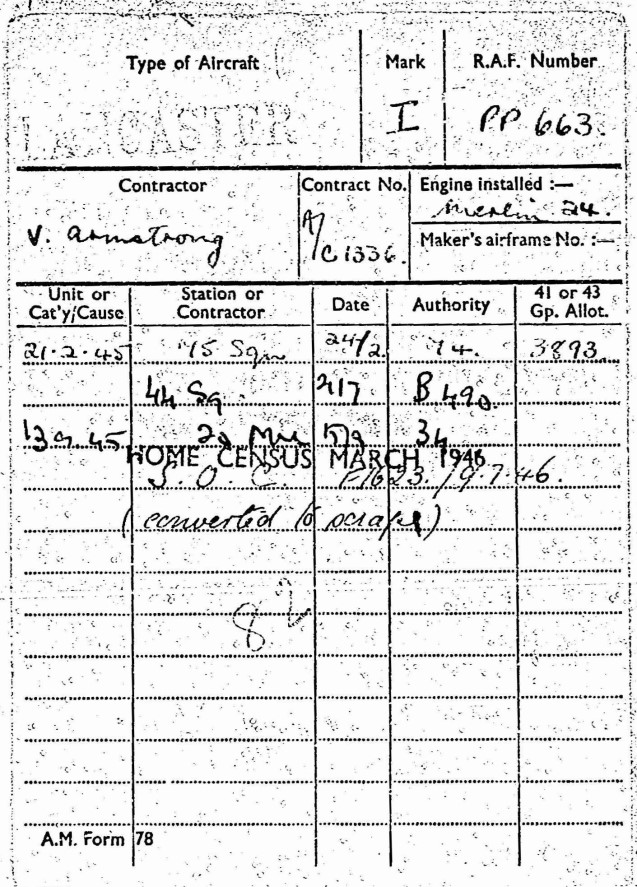 Type of Aircraft Mark R.A.F. Number
LANCASTER I PP 663.
Contractor Contract No. Engine installed :—
Merlin 24.
V. Armstrong A/C 1336. Maker's airframe No. :—
Unit or Cat'y/Cause Station or Contractor Date Authority 41 or 43 Gp. Allot.
21.2.45 15 Sqn 24/2 14. 3893
44 Sq 2/7 B 490
13 9. 45 20 15/9 34
HOME CENSUS MARCH 1946
S. O. C. F1623. 19.7.46.
(converted to scrap)
82
A.M. Form 78